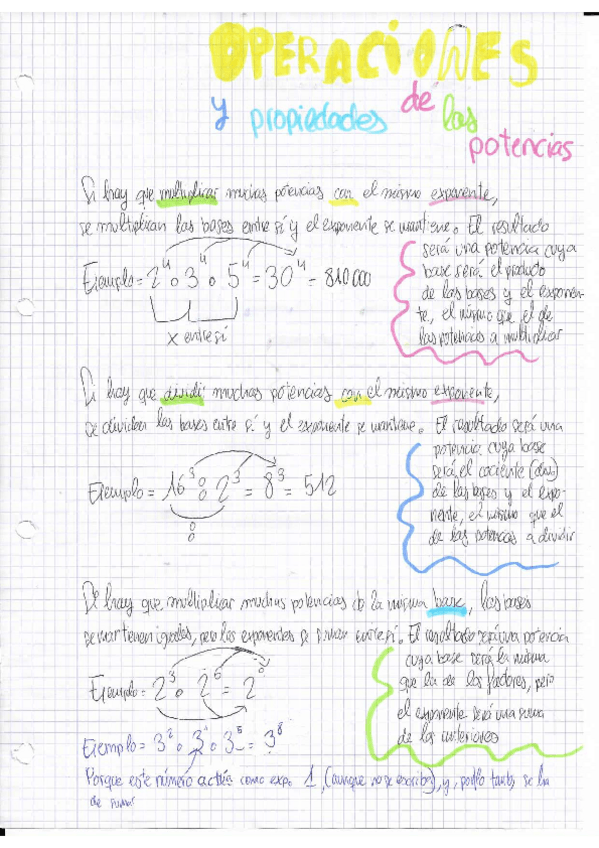 OPERACIONES
y propiedades de las
potencias
Si hay que multiplicar muchas potencias con el mismo exponente,
se multiplican las bases entre sí y el exponente se mantiene. El resultado
será una potencia cuya
base será el producto
de las bases y el exponen-
te, el mismo que el de
las potencias a multiplicar
Ejemplo = 2⁴ · 3⁴ · 5⁴ = 30⁴ = 810000
x entre sí
Si hay que dividir muchas potencias con el mismo exponente,
se dividen las bases entre sí y el exponente se mantiene. El resultado será una
potencia cuya base
será el cociente (div.)
de las bases y el expo-
nente, el mismo que el
de las potencias a dividir
Ejemplo = 16³ : 2³ = 8³ = 512
:
Si hay que multiplicar muchas potencias de la misma base, las bases
se mantienen iguales, pero los exponentes se suman entre sí. El resultado será una potencia
cuya base será la misma
que la de los factores, pero
el exponente será una suma
de los anteriores
Ejemplo = 2³ · 2⁶ = 2
Ejemplo = 3² · 3¹ · 3⁵ = 3⁸
Porque este número actúa como expo. 1, (aunque no se escriba), y, por lo tanto, se ha
de sumar